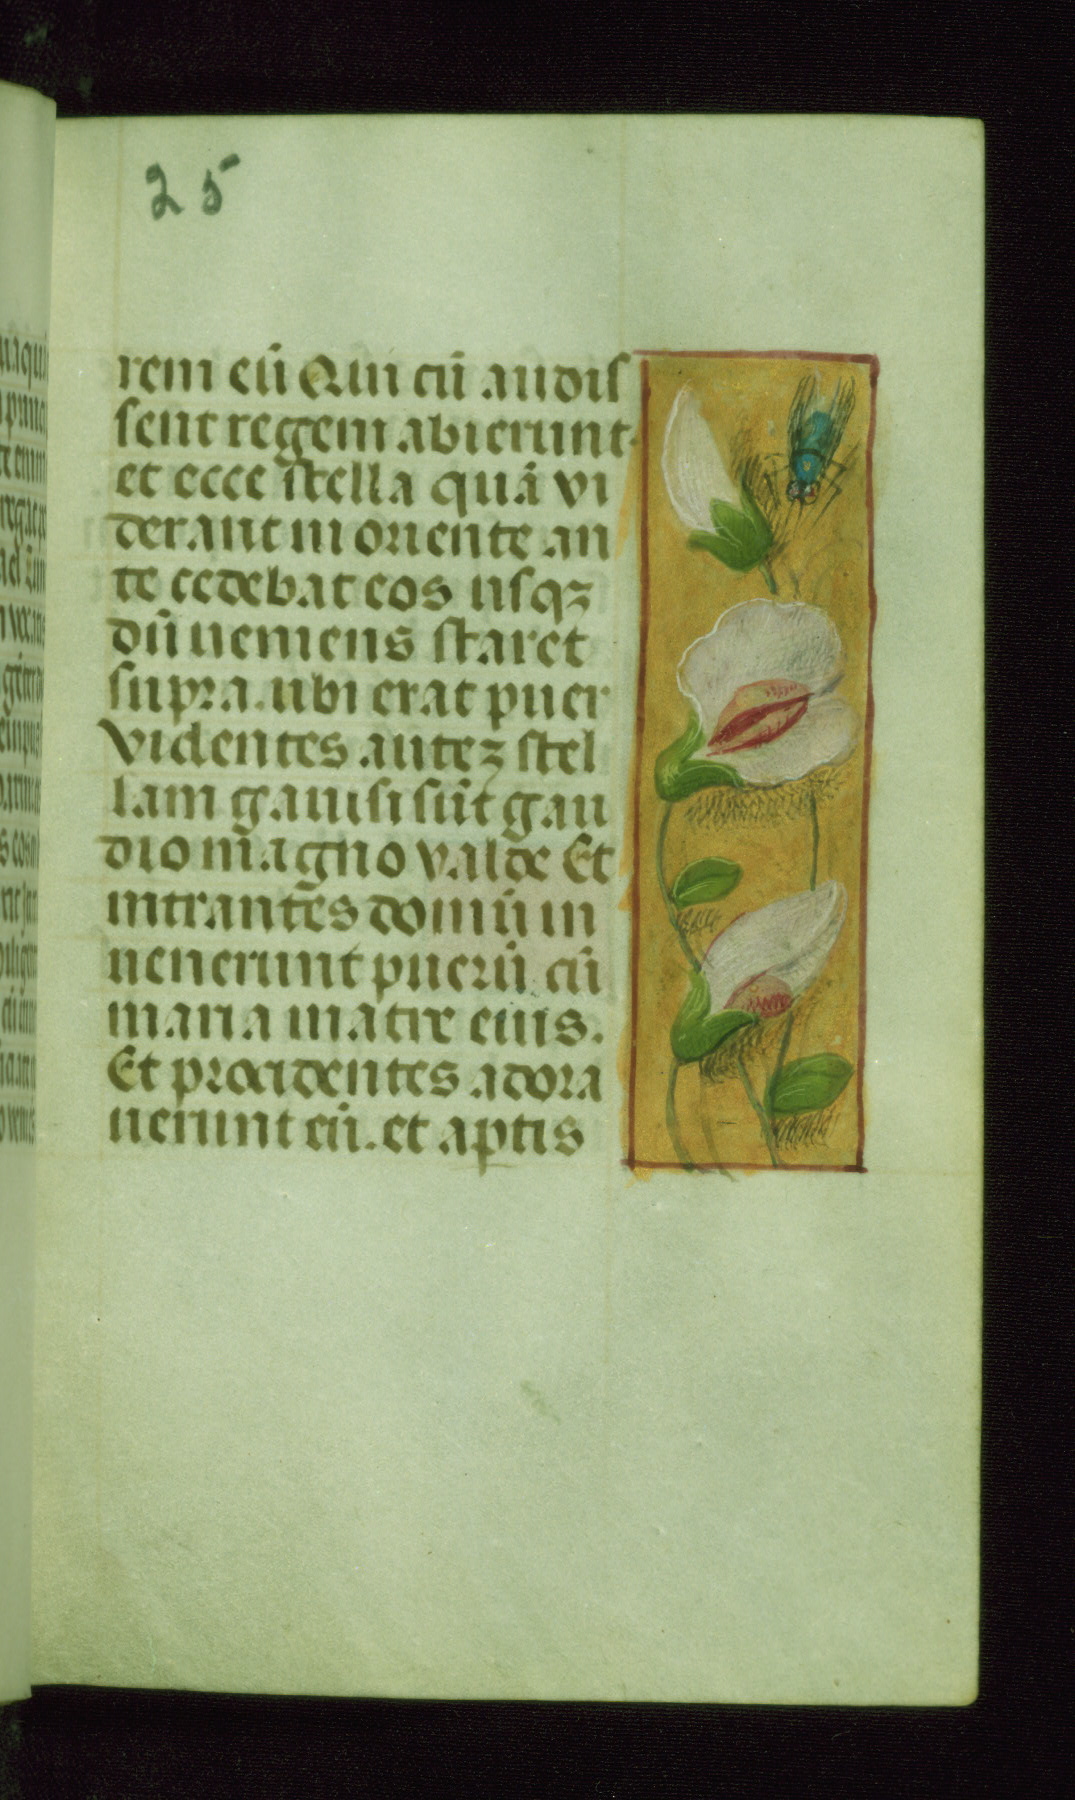 25
rem eū Qui cū audis
sent regem abierunt.
et ecce stella quā vi
derant in oriente an
te cedebat eos usqꝫ
dū ueniens staret
supra. ubi erat puer
Videntes autēꝫ stel
lam gauisi sūt gau
dio magno valde Et
intrantes domū in
uenerunt puerū cū
maria matre eius.
Et procidentes adora
uerunt eū. et aptis